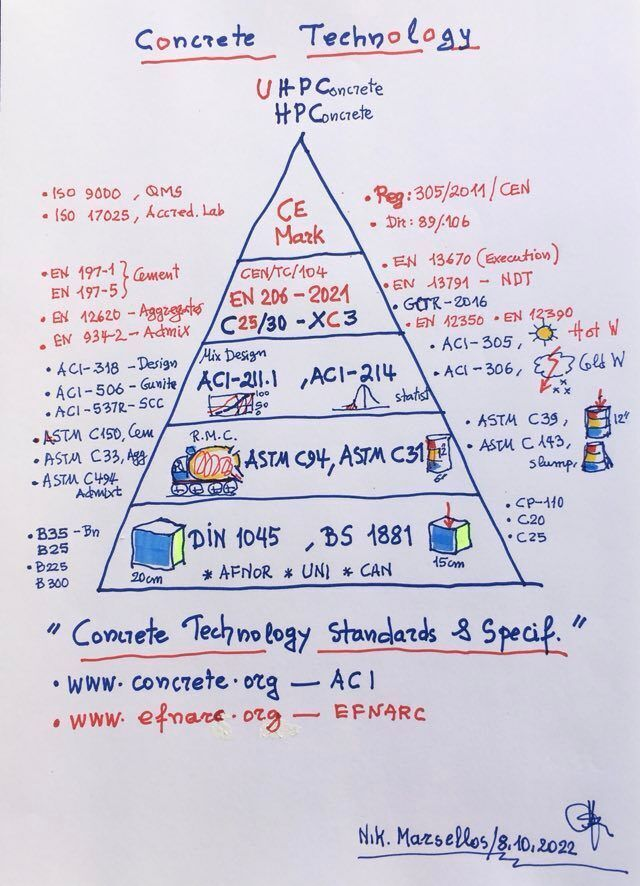 Concrete Technology
UHPConcrete
HPConcrete
• ISO 9000, QMS
• ISO 17025, Accred. Lab
• EN 197-1 } Cement
EN 197-5
• EN 12620 - Aggregates
• EN 934-2 - Admix
• ACI-318 - Design
• ACI-506 - Gunite
• ACI-537R-SCC
• ASTM C150, Cem
• ASTM C33, Agg
• ASTM C494
Admixt
• B35 - Bn
B25
• B225
B300
CE
Mark
CEN/TC/104
EN 206 - 2021
C25/30 - XC3
Mix Design
ACI-211.1 , ACI-214
100
50
0
statist
R.M.C.
ASTM C94, ASTM C31
12"
6"
DIN 1045 , BS 1881
20cm
15cm
* AFNOR * UNI * CAN
• Reg: 305/2011/CEN
• Dir: 89/106
• EN 13670 (Execution)
• EN 13791 - NDT
• GCTR-2016
• EN 12350 • EN 12390
• ACI-305, Hot W
• ACI-306, Cold W
• ASTM C39, 12"
• ASTM C143,
slump,
• CP-110
• C20
• C25
" Concrete Technology Standards & Specif. "
• www.concrete.org — ACI
• www.efnarc.org — EFNARC
Nik. Marsellos/8.10.2022